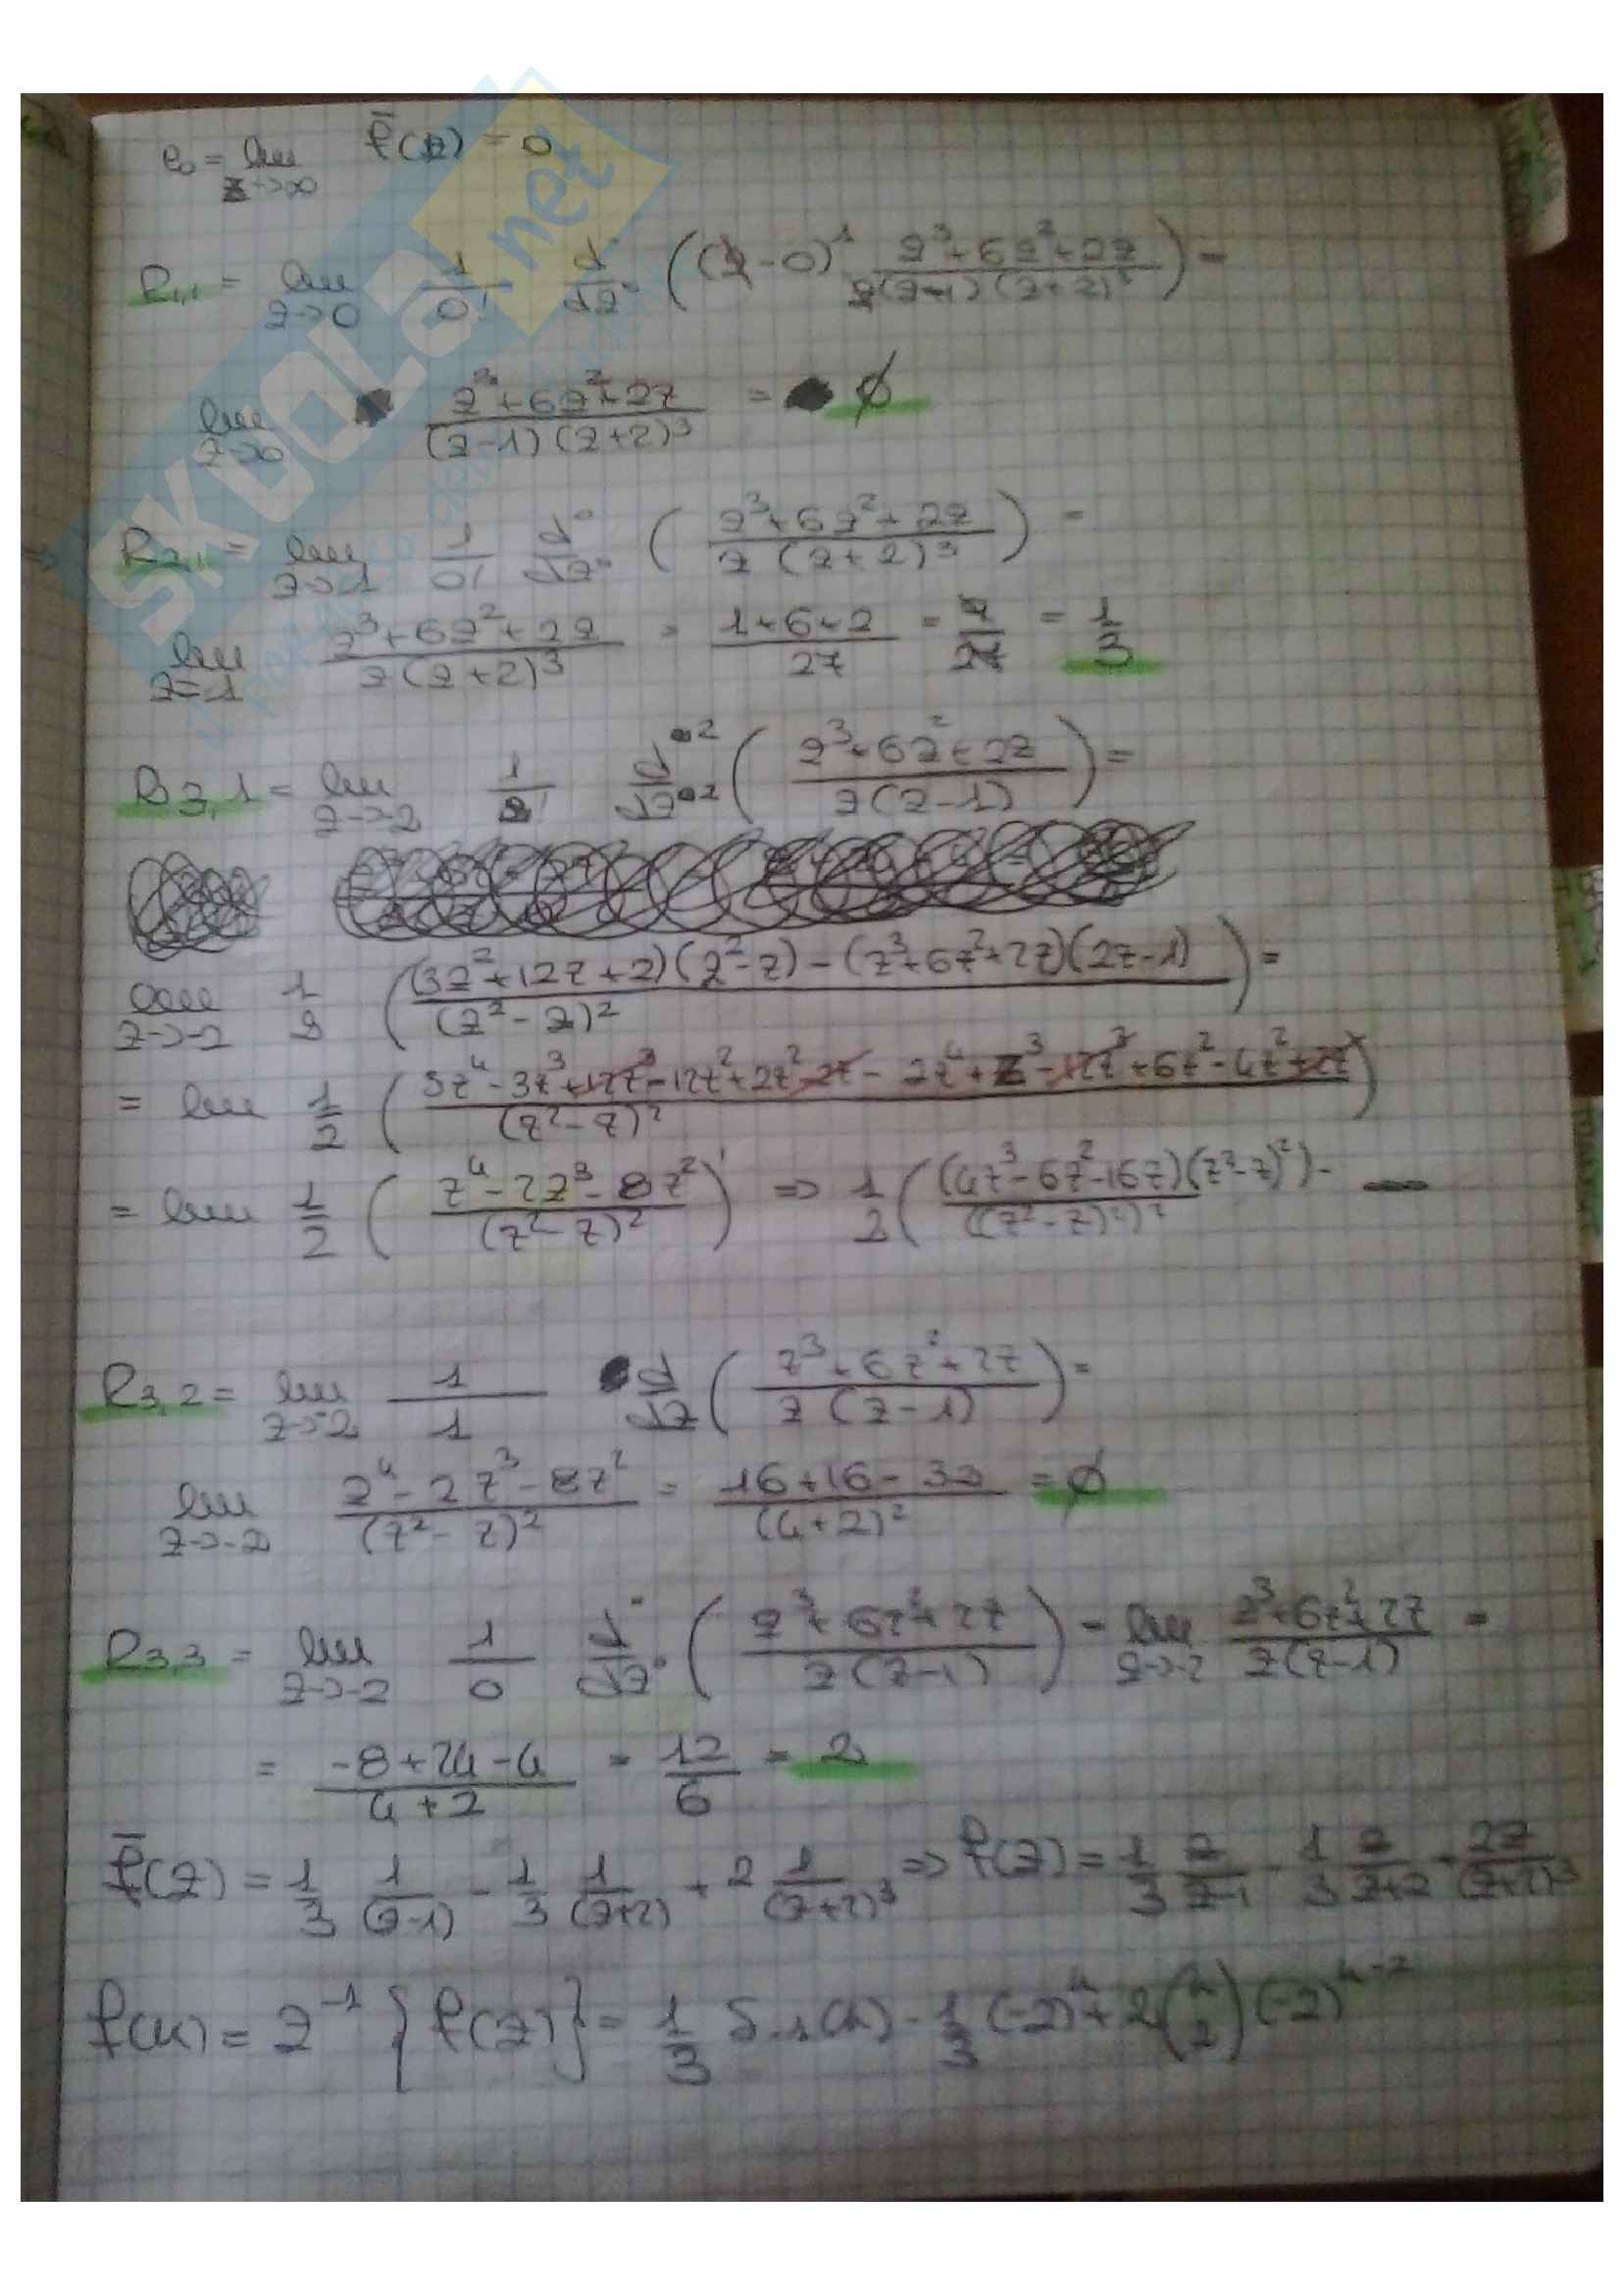 e₀ = lim z->∞ f̄(z) = 0
R₁,₁ = lim z->0 1/0! d°/dz° ((z-0)¹ (z³+6z²+2z)/(z(z-1)(z+2)³)) =
lim z->0 (z³+6z²+2z)/((z-1)(z+2)³) = ∅
R₂,₁ = lim z->1 1/0! d°/dz° ((z³+6z²+2z)/(z(z+2)³)) =
lim z=1 (z³+6z²+2z)/(z(z+2)³) = (1+6+2)/27 = 9/27 = 1/3
R₃,₁ = lim z->-2 1/2! d²/dz² ((z³+6z²+2z)/(z(z-1))) =
lim z->-2 1/2 (((3z²+12z+2)(z²-z)-(z³+6z²+2z)(2z-1))/(z²-z)²) =
= lim 1/2 ((3z⁴-3z³+12z³-12z²+2z²-2z-2z⁴+z³-12z³+6z²-4z²+2z)/(z²-z)²)
= lim 1/2 ((z⁴-2z³-8z²)/(z²-z)²)' => 1/2 ((4z³-6z²-16z)(z²-z)²)-/((z²-z)²)²
R₃,₂ = lim z->-2 1/1 d/dz ((z³+6z²+2z)/(z(z-1))) =
lim z->-2 (z⁴-2z³-8z²)/(z²-z)² = (16+16-32)/(4+2)² = ∅
R₃,₃ = lim z->-2 1/0 d°/dz° ((z³+6z²+2z)/(z(z-1))) = lim z->-2 (z³+6z²+2z)/(z(z-1)) =
= (-8+24-4)/(4+2) = 12/6 = 2
f̄(z) = 1/3 1/(z-1) - 1/3 1/(z+2) + 2 1/(z+2)³ => f(z) = 1/3 z/(z-1) - 1/3 z/(z+2) + 2z/(z+2)³
f(k) = z⁻¹ {f(z)} = 1/3 δ₋₁(k) - 1/3 (-2)ᵏ + 2(k 2)(-2)ᵏ⁻²
SKUOLA.net